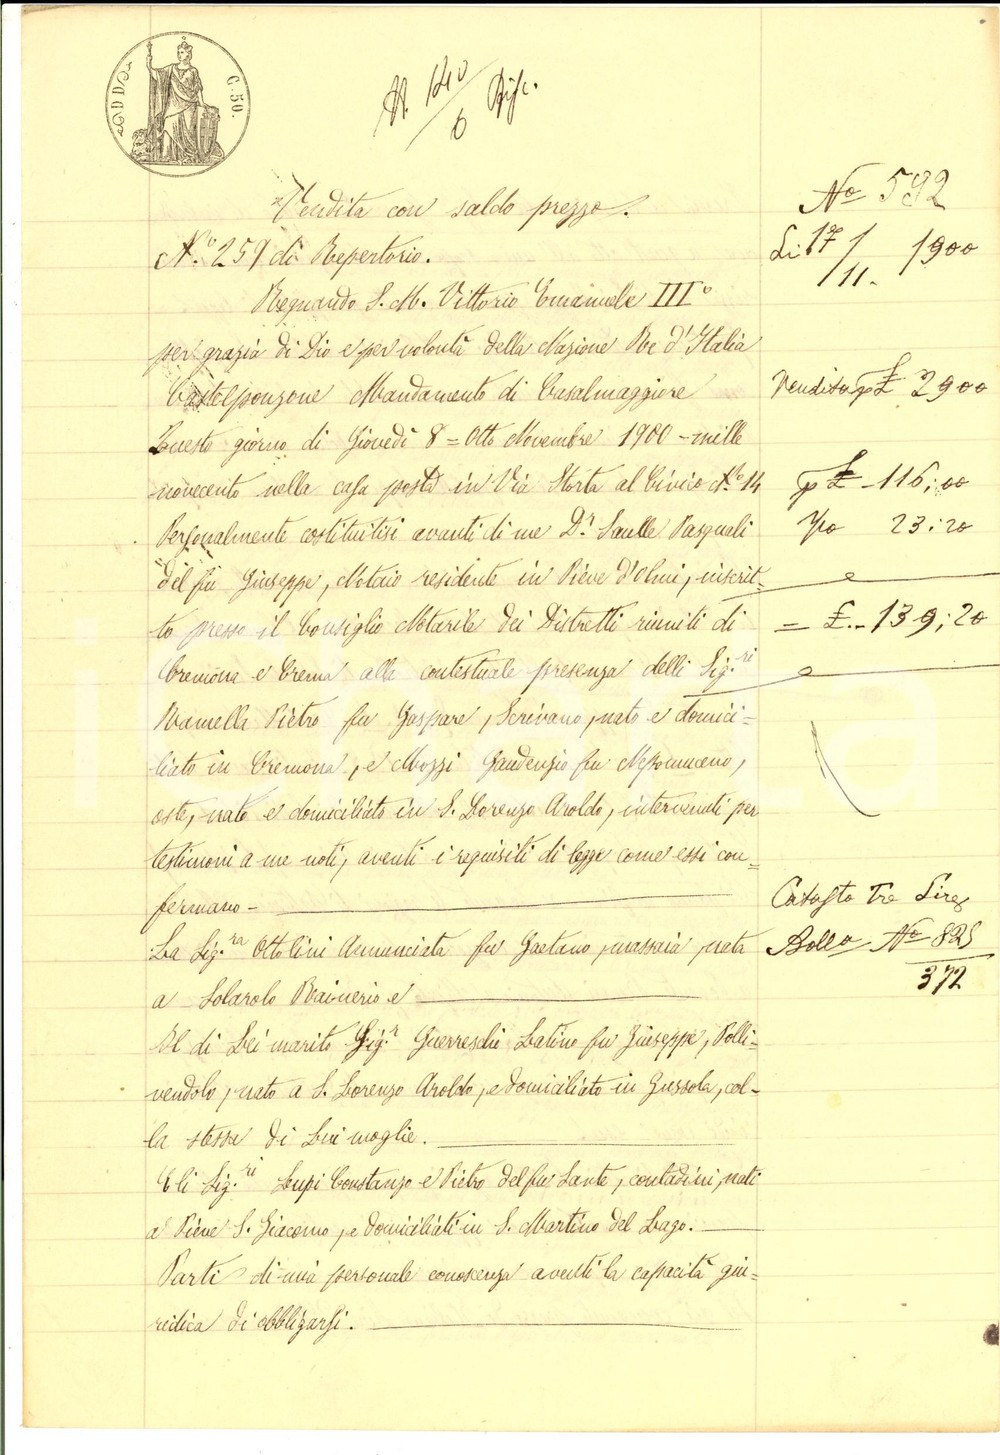 C. 50.
N. 140/6
Vendita con saldo prezzo.
N.º 259 di Repertorio.
Regnando S. M. Vittorio Emanuele IIIº
per grazia di Dio e per volontà della Nazione Re d'Italia
Castelponzone Mandamento di Casalmaggiore
Questo giorno di Giovedì 8 = Otto Novembre 1900 - mille
novecento nella casa posta in Via Storta al Civico N.º 14
Personalmente costituitisi avanti di me D.r Saulle Pasquali
del fu Giuseppe, Notaio residente in Pieve d'Olmi, inscrit-
to presso il Consiglio Notarile dei Distretti riuniti di
Cremona e Crema alla contestuale presenza delli Sig.ri
Ramella Pietro fu Gaspare, Scrivano, nato e domici=
liato in Cremona, e Mozzi Gaudenzio fu Nepomuceno,
oste, nato e domiciliato in S. Lorenzo Aroldo, intervenuti per
testimoni a me noti, aventi i requisiti di legge come essi con=
fermano -
La Sig.ra Ottolini Annunciata fu Gaetano, massaia, nata
a Solarolo Rainerio e
Il di Lei marito Sig.r Guerreschi Latino fu Giuseppe, Polli-
vendolo, nato a S. Lorenzo Aroldo, e domiciliato in Gussola, col-
la stessa di Lui moglie.
E li Sig.ri Lupi Constanzo e Pietro del fu Sante, contadini, nati
a Pieve S. Giacomo, e domiciliati in S. Martino del Lago.
Parti di mia personale conoscenza aventi la capacità giu=
ridica di obbligarsi.
No 592
Li 17/11. 1900
Vendita p £ 2900
p £ - 116,00
23,20
= £. - 139,20
Catasto Tre Lire
Bolla No 825
372